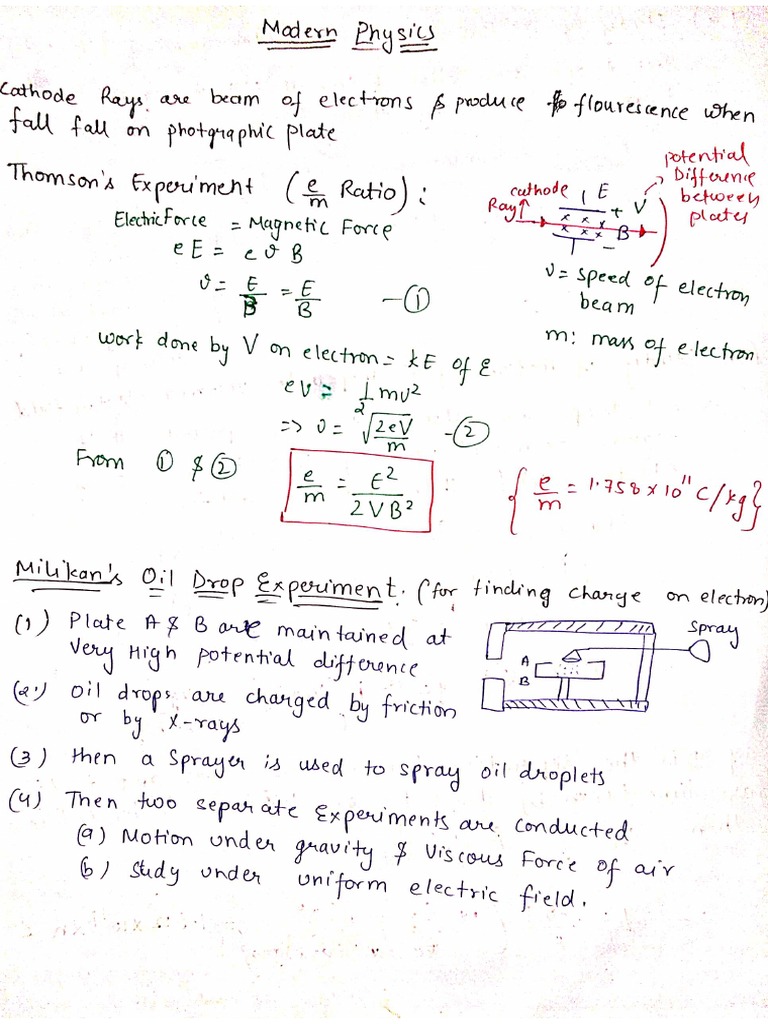 Modern Physics
Cathode Rays are beam of electrons & produce flourescence when
fall fall on photgraphic plate
Thomson's Experiment (e/m Ratio) :
Electric Force = Magnetic Force
eE = evB
v = E/B = E/B — ①
cathode Ray↑
E
+ V
B
–
potential
Difference
between
plates
v = speed of electron
beam
m: mass of electron
work done by V on electron = KE of E
eV = 1/2 mv²
=> v = √(2eV/m) — ②
From ① & ②
e/m = E²/2VB²
{e/m = 1.758 × 10¹¹ C/kg}
Milikan's Oil Drop Experiment. (for finding charge on electron)
(1) Plate A & B are maintained at
Very High potential difference
(2) Oil drops are charged by friction
or by X-rays
Spray
A
B
(3) then a Sprayer is used to spray oil droplets
(4) Then two separate Experiments are conducted
(a) Motion under gravity & Viscous Force of air
(b) Study under uniform electric field.